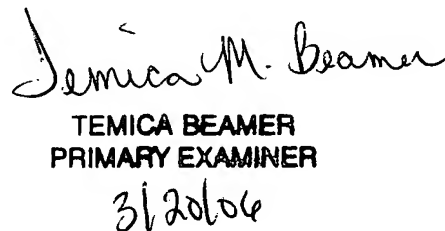 Temica M. Beamer
TEMICA BEAMER
PRIMARY EXAMINER
3/20/06